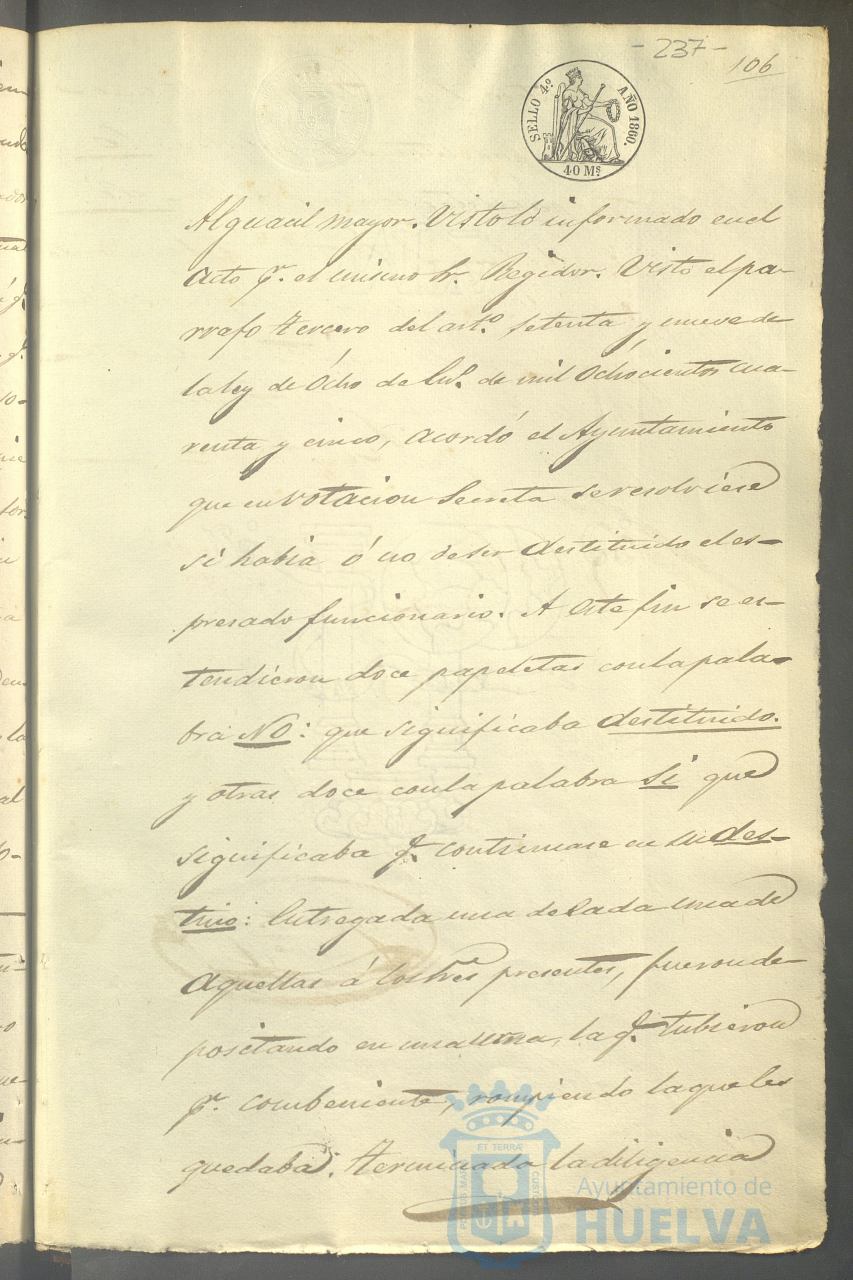 - 237 -
106
SELLO 4º AÑO 1860.
40 Mˢ
Alguacil mayor. Visto lo informado en el
Acto pr. el mismo Sr. Regidor. Visto el pa-
rrafo tercero del artº. setenta y nueve de
la ley de Ocho de En.º de mil Ochocientos cua-
renta y cinco, acordó el Ayuntamiento
que en votacion Secreta se resolviese
si habia ó no de ser destituido el es-
presado funcionario. A este fin se es-
tendieron doce papeletas con la pala-
bra NO: que significaba destituido.
y otras doce con la palabra Si que
significaba q. continuase en su des-
tino: Entregada una de Cada una de
aquellas á los Sres presentes, fueron de-
positando en una urna, la q. tubieron
pr. combeniente, rompiendo la que les
quedaba. Terminada la diligencia
PORTUS MARIS ET TERRAE CUSTODIA
Ayuntamiento de
HUELVA